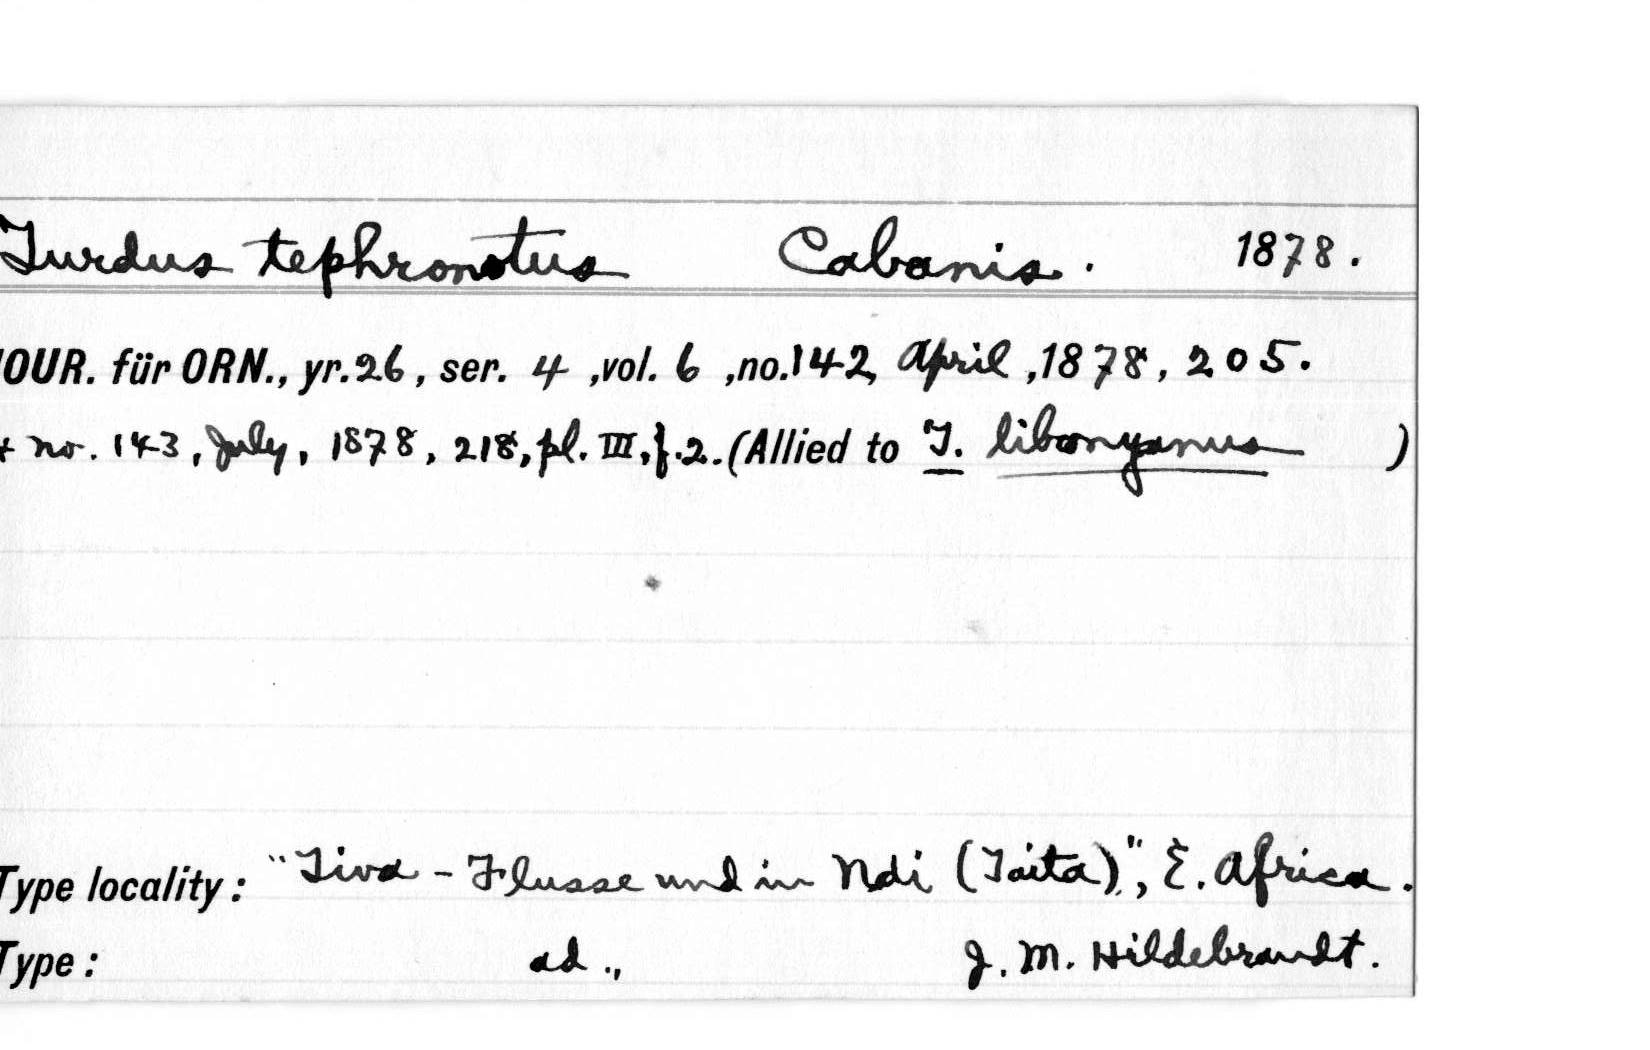 Turdus tephronotus Cabanis. 1878.
JOUR. für ORN., yr. 26, ser. 4, vol. 6, no. 142, April, 1878, 205.
+ no. 143, July, 1878, 218, pl. III, f. 2. (Allied to T. libonyanus)
Type locality: "Tiva-Flusse und in Ndi (Taita)", E. Africa.
Type: ad., J. M. Hildebrandt.